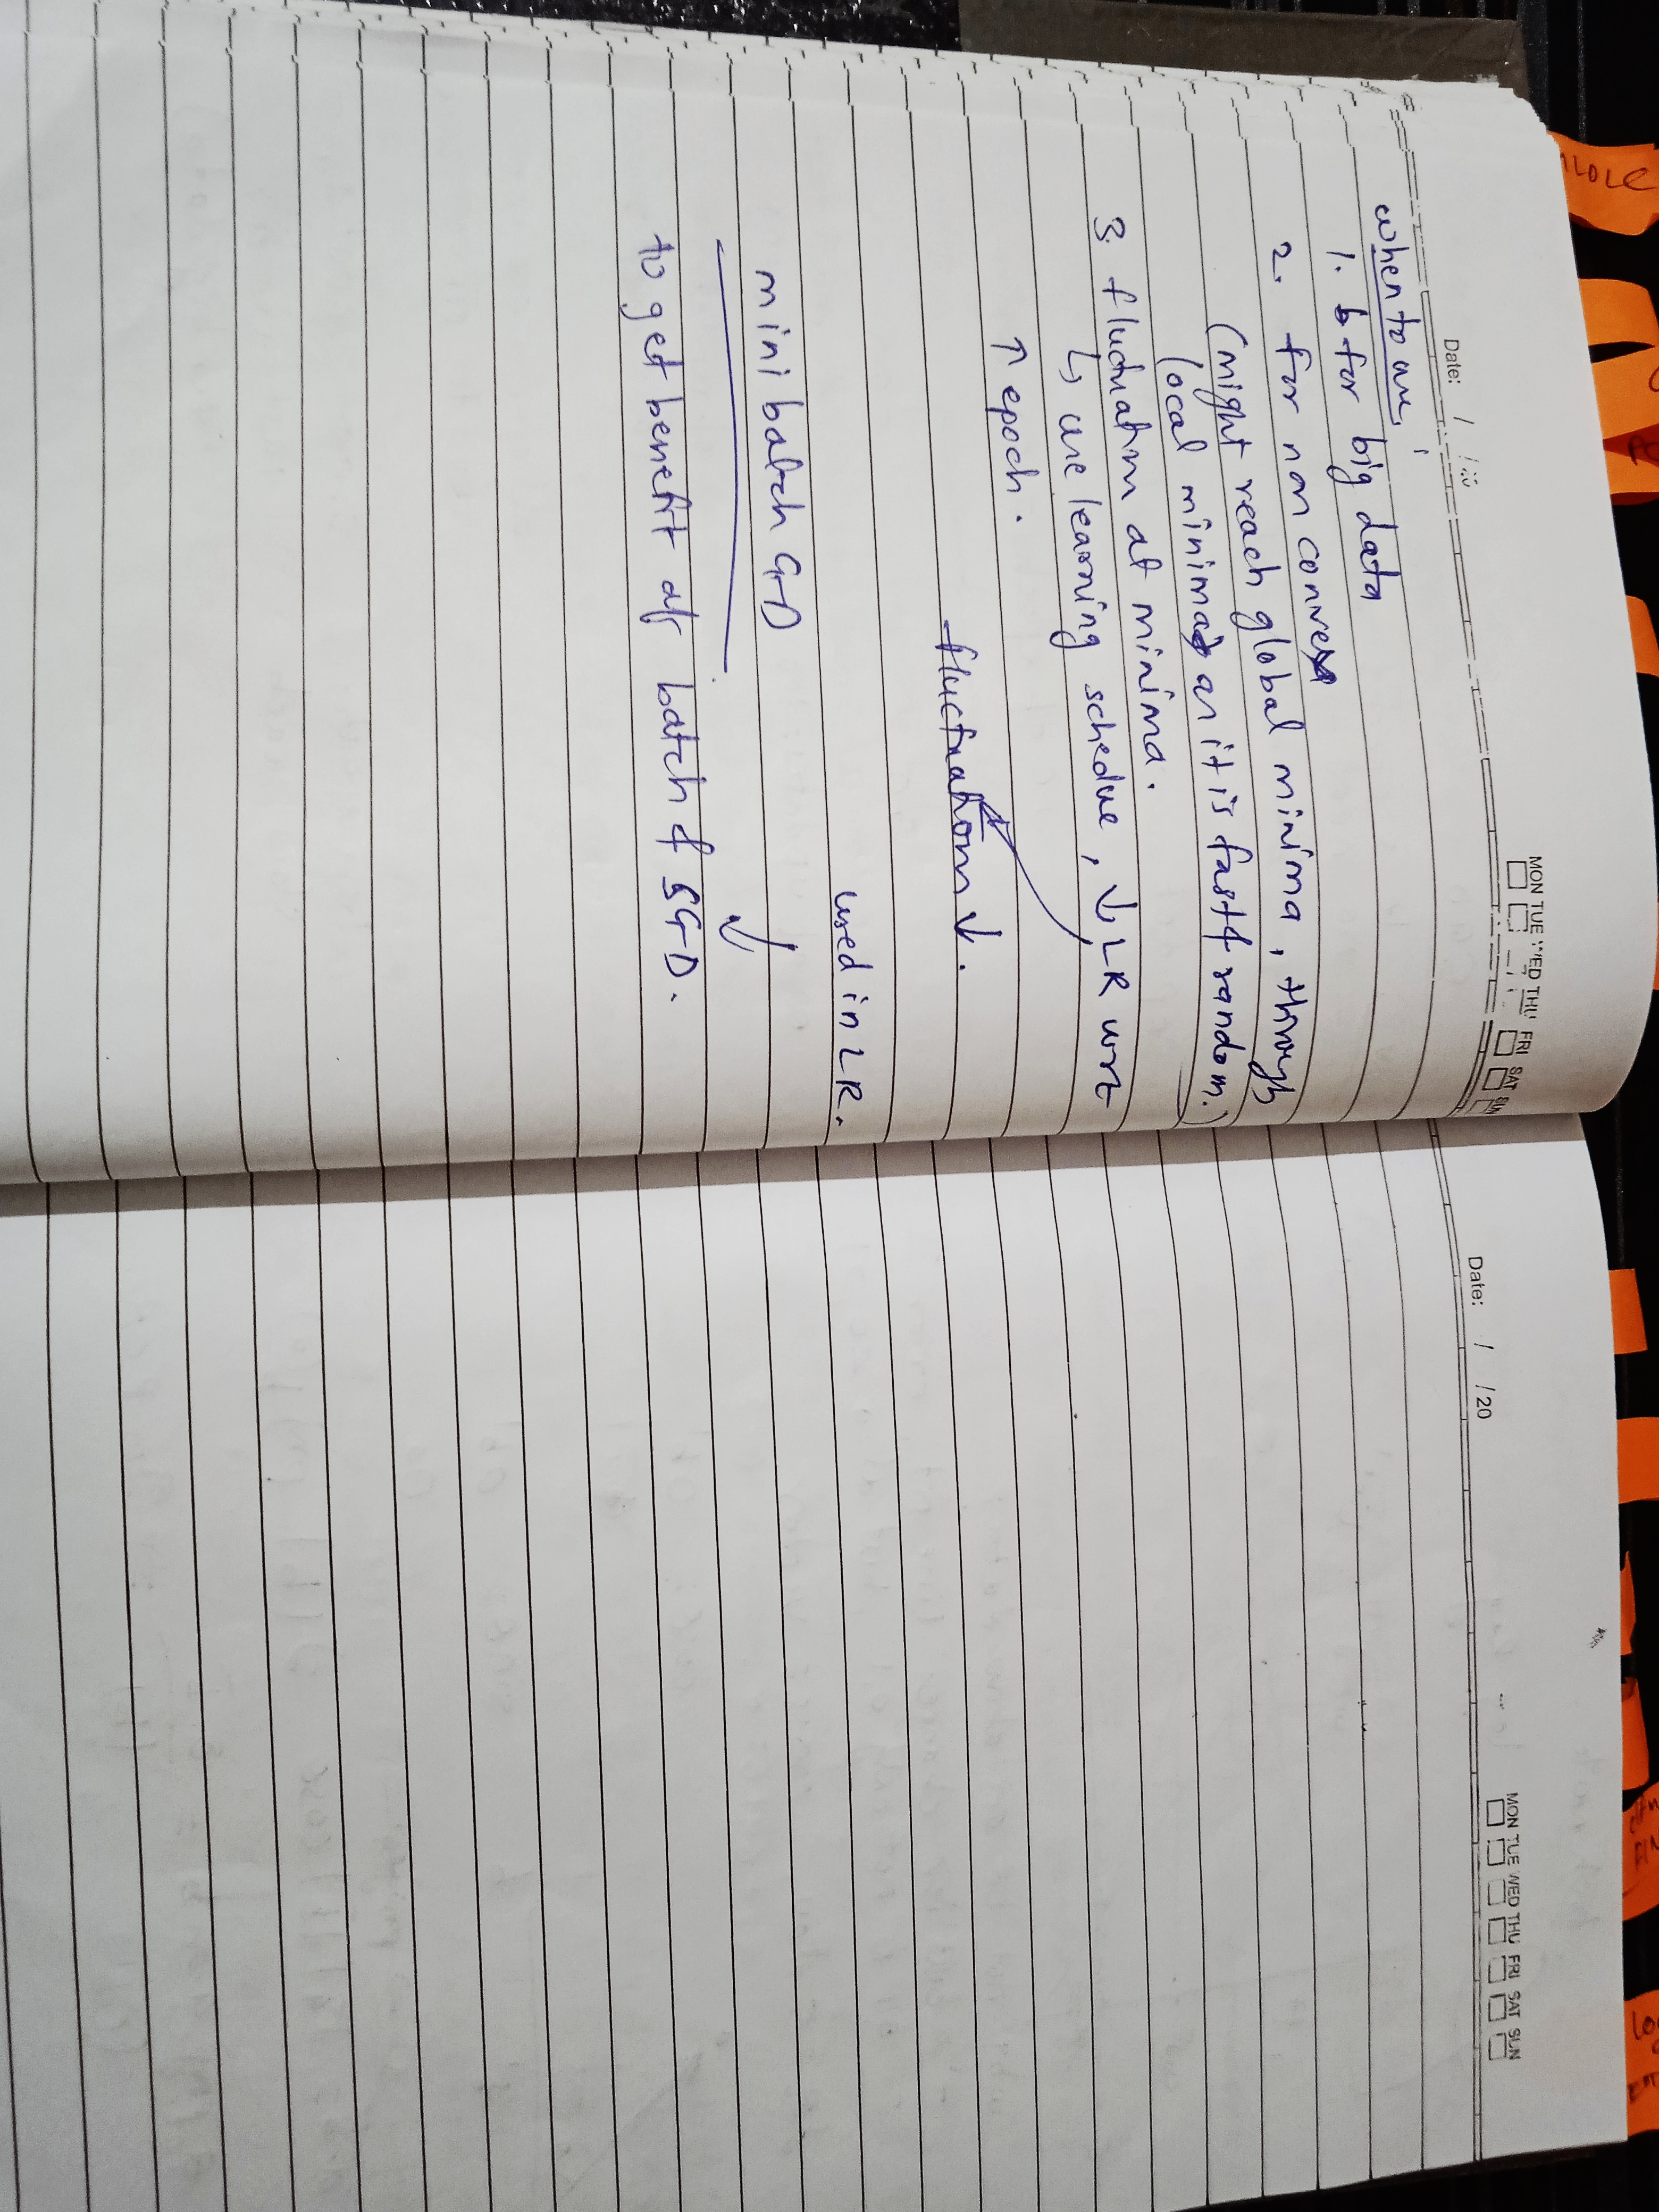 Date: / /20
MON TUE WED THU FRI SAT SUN
when to use
1. for big data
2. for non convex
(might reach global minima, through
local minima as it is fast & random.)
3. fluctuation at minima.
↳ use learning schedue, ↓ LR wrt
↑ epoch.
fluctuation ↓.
used in LR.
mini batch GD
to get benefit of batch & SGD.
Date: / /20
MON TUE WED THU FRI SAT SUN